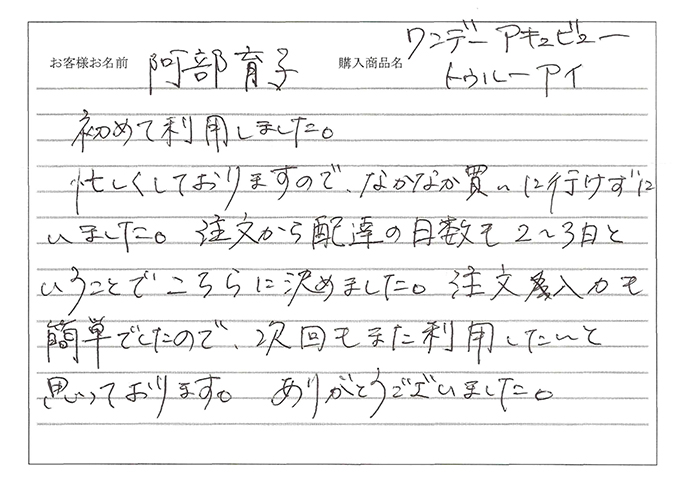 お客様お名前 阿部育子 購入商品名 ワンデー アキュビュー
トゥルーアイ
初めて利用しました。
忙しくしておりますので、なかなか買いに行けずに
いました。注文から配達の日数も2〜3日と
いうことでこちらに決めました。注文入力も
簡単でしたので、次回もまた利用したいと
思っております。ありがとうございました。